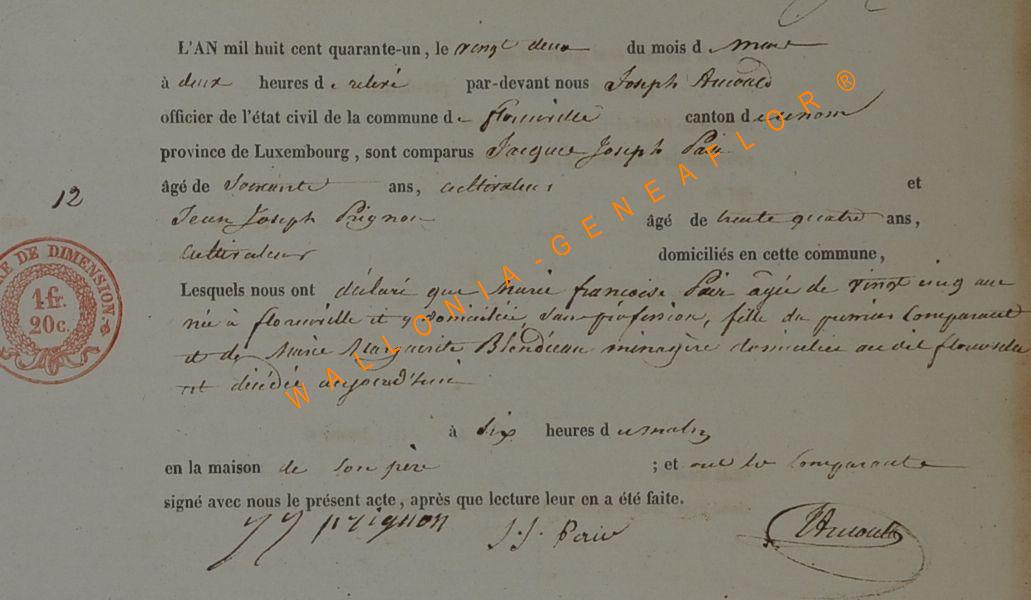 L'AN mil huit cent quarante-un, le vingt deux du mois d mars
à deux heures de relevé par-devant nous Joseph
officier de l'état civil de la commune de florenville canton de
province de Luxembourg, sont comparus Jacques Joseph
12
âgé de Soixante ans, cultivateur et
Jean Joseph Prignon âgé de trente quatre ans,
cultivateur domiciliés en cette commune,
Lesquels nous ont déclaré que Marie françoise agée de vingt cinq ans
née à florenville et y domiciliée, sans profession, fille du premier Comparant
et de Marie Marguerite Blondieau ménagère domiciliée au dit florenville
est décédée aujourd'hui
à six heures du matin
en la maison de son père ; et ont les Comparants
signé avec nous le présent acte, après que lecture leur en a été faite.
JJ prignon J. J.
DE DIMENSION
1 fr.
20 c.
WALLONIA-GENEAFLOR®